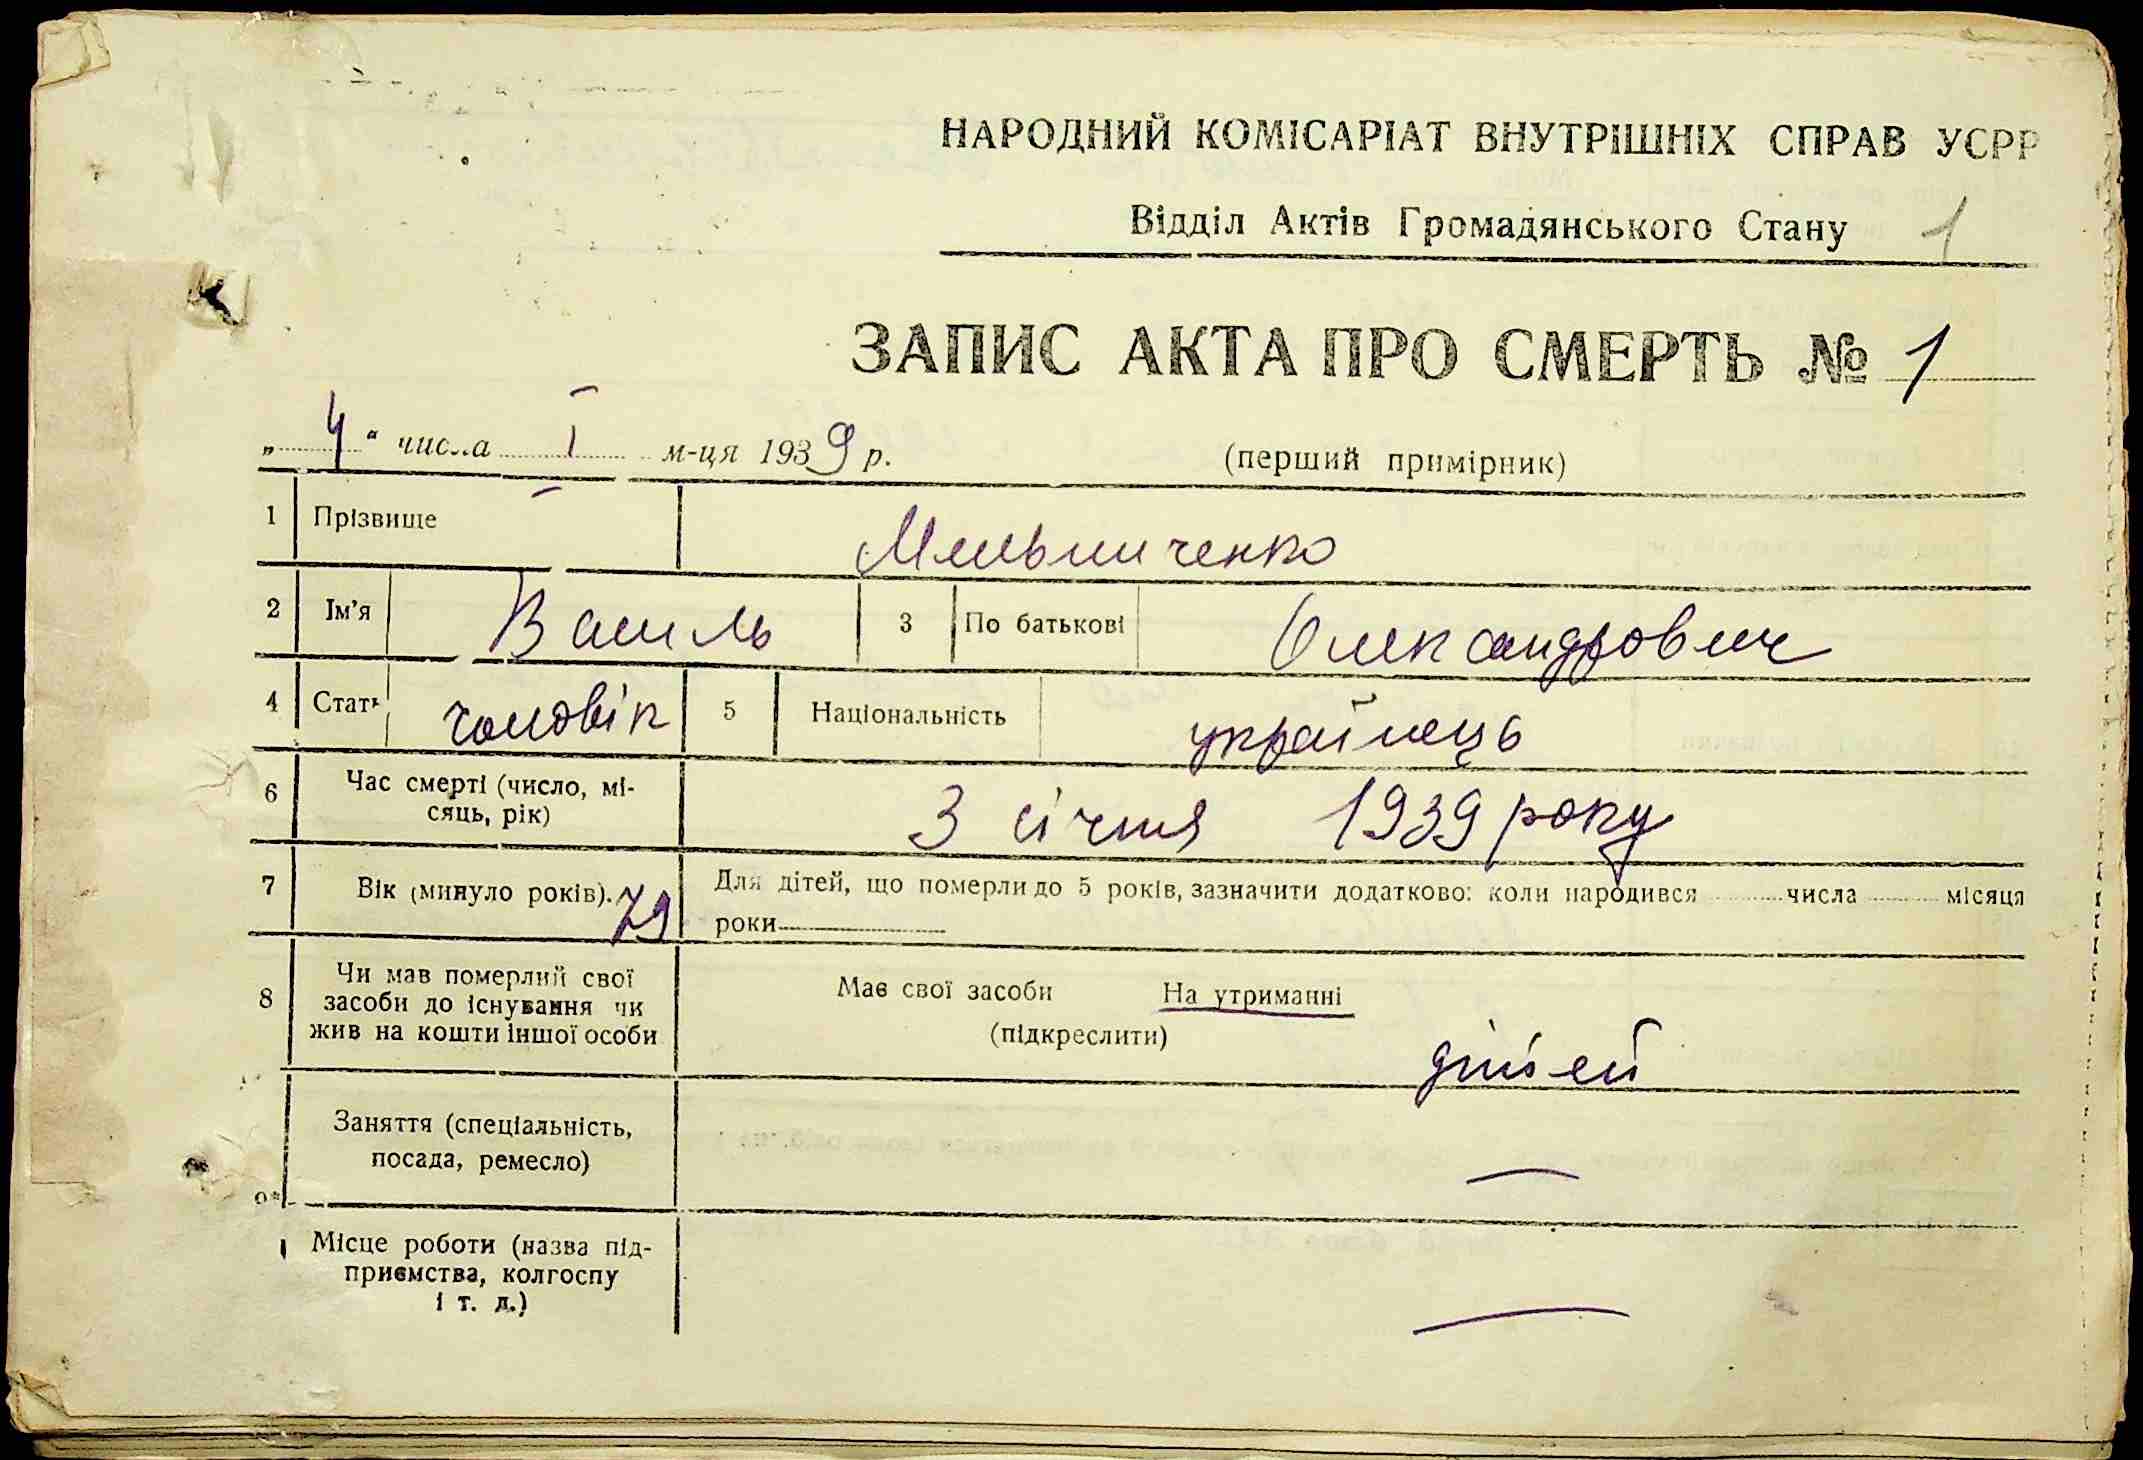 НАРОДНИЙ КОМІСАРІАТ ВНУТРІШНІХ СПРАВ УСРР
Відділ Актів Громадянського Стану 1
ЗАПИС АКТА ПРО СМЕРТЬ № 1
„ 4 “ числа I м-ця 1939 р. (перший примірник)
1 Прізвище Мельниченко
2 Ім'я Василь 3 По батькові Олександрович
4 Стать чоловік 5 Національність українець
6 Час смерті (число, мі-
сяць, рік) 3 січня 1939 року
7 Вік (минуло років). 79 Для дітей, що померли до 5 років, зазначити додатково: коли народився числа місяця
роки
8 Чи мав померлий свої
засоби до існування чи
жив на кошти іншої особи
Має свої засоби На утриманні
(підкреслити)
дітей
Заняття (спеціальність,
посада, ремесло) —
9
Місце роботи (назва під-
приємства, колгоспу
і т. д.) —